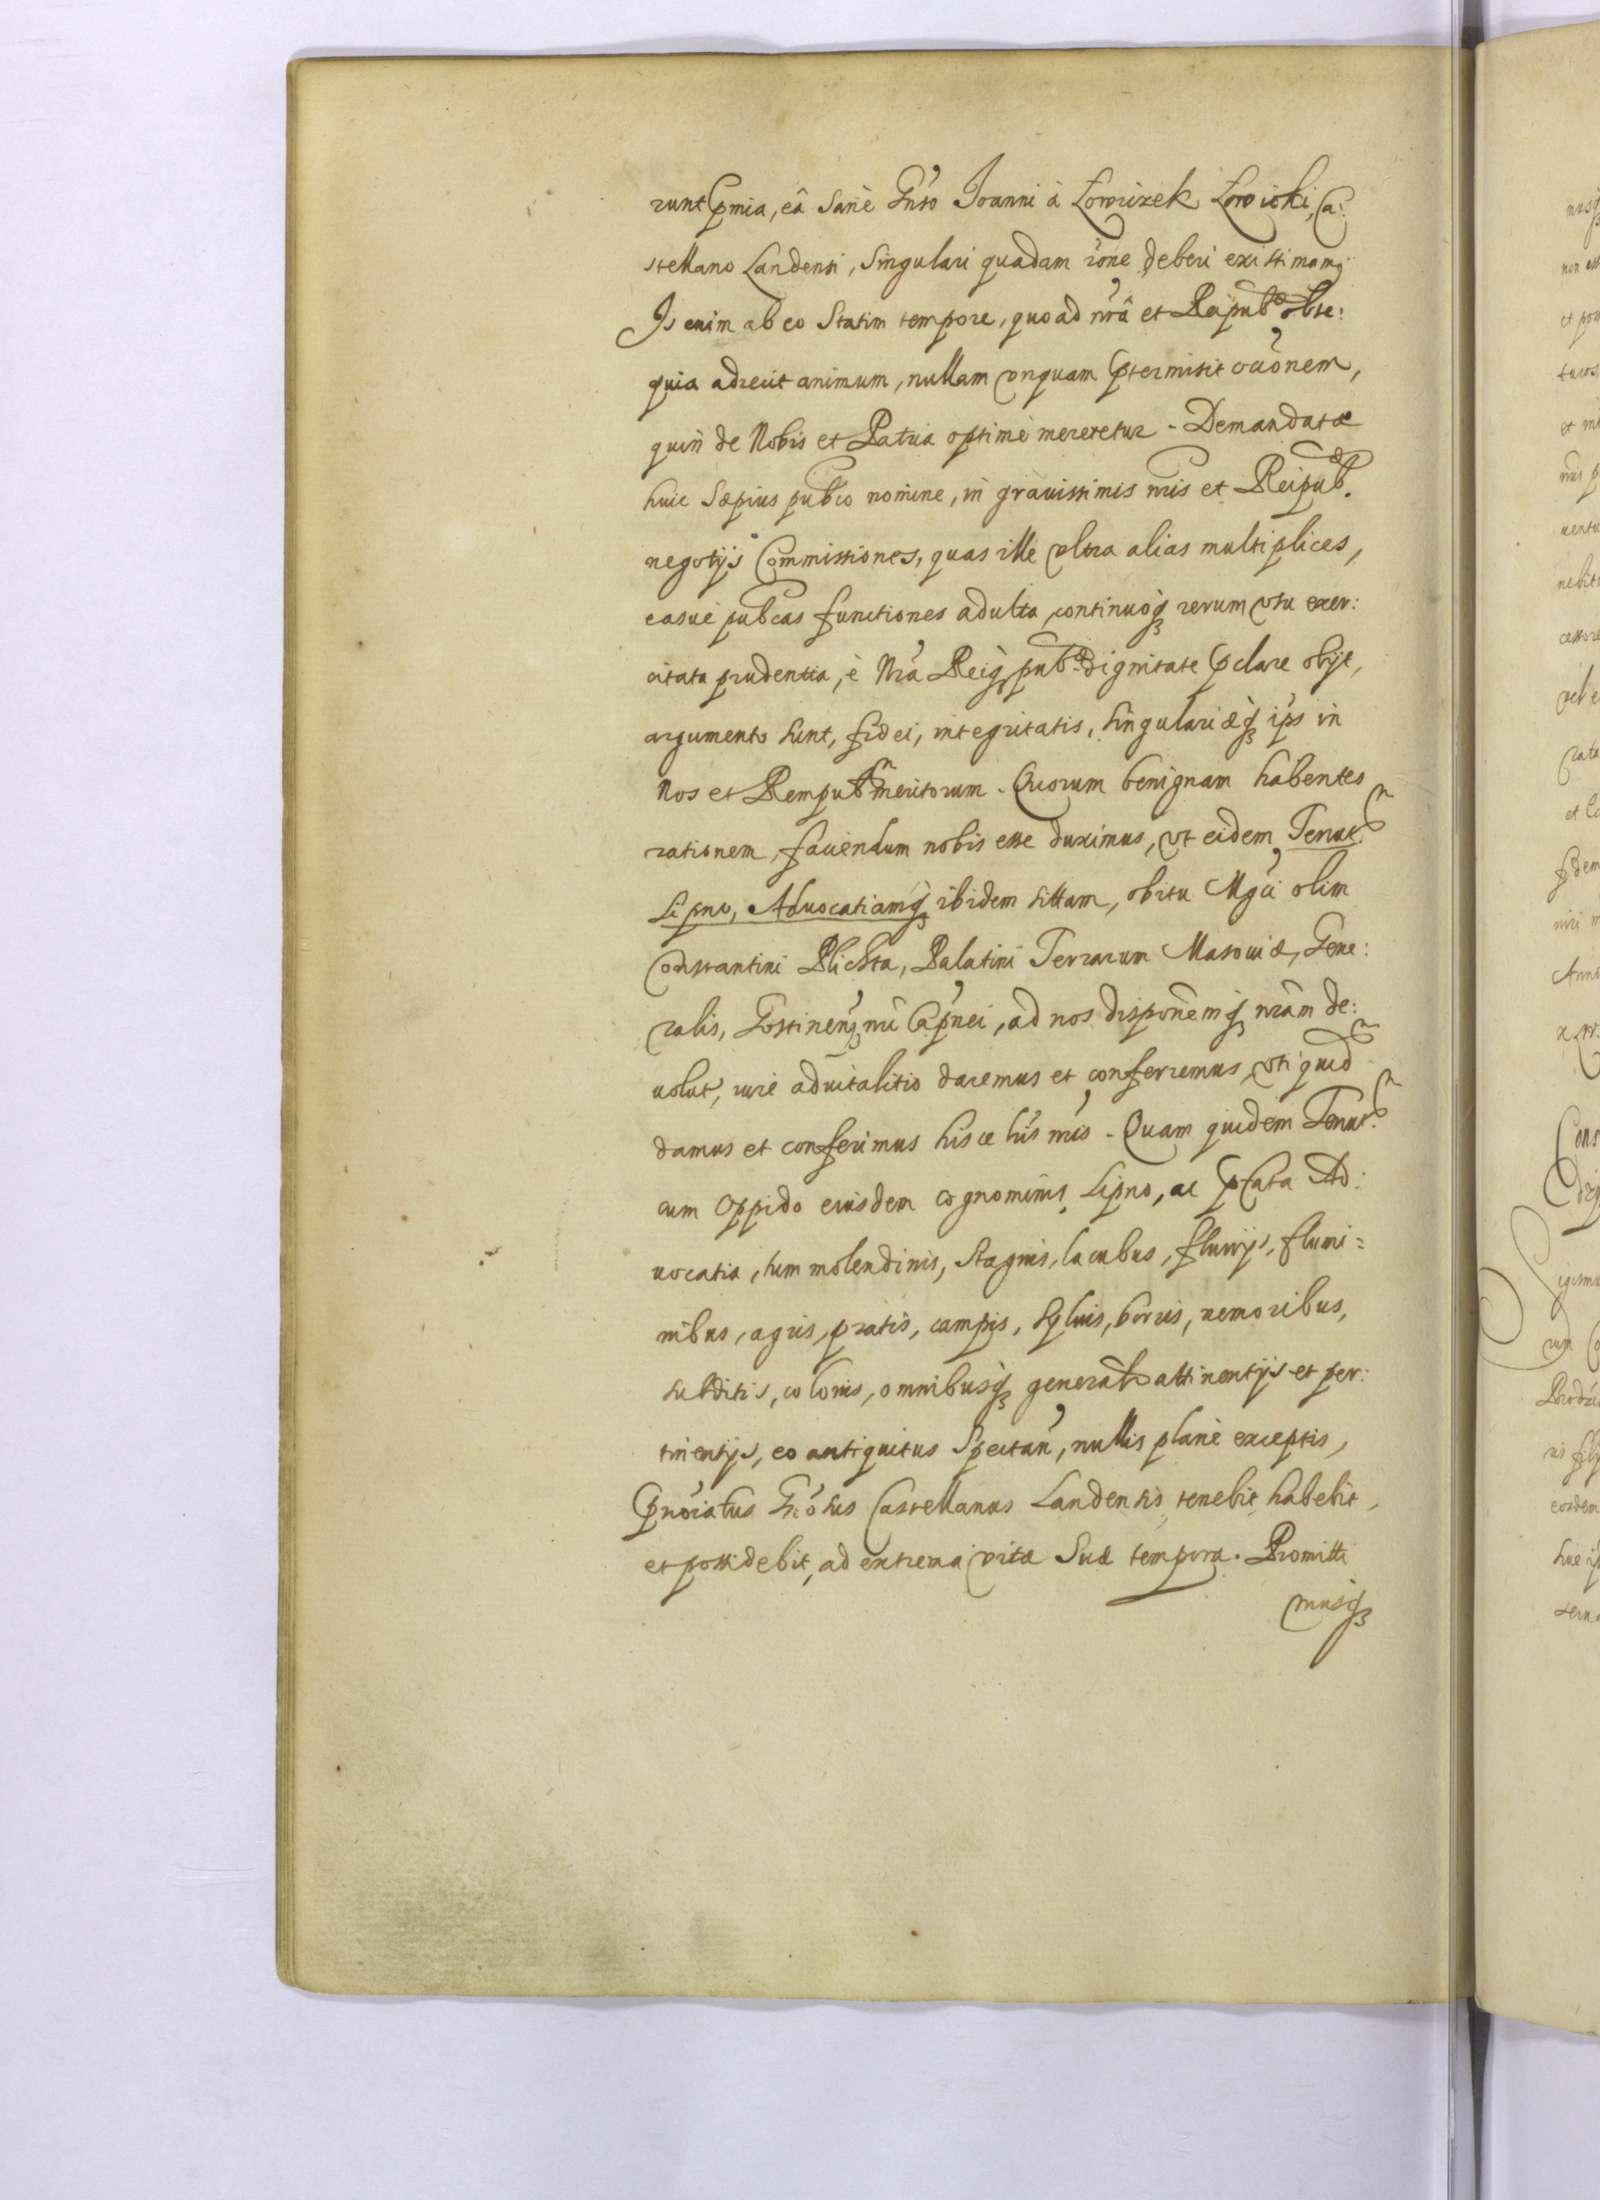 runt pmia, eâ Sane Gnso Joanni à Łowiczek Łowicki, Ca:
stellano Landensi, Singulari quadam rõne deberi existimamq
Is enim ab eo Statim tempore, quo ad nrâ et Reipubæ obse:
quia adiecit animum, nullam vnquam ptermisit occõnem,
quin de Nobis et Patria optimè mereretur. Demandatæ
huic Sæpius pubco nomine, in grauissimis nris et Reipub.æ
negotijs Commissiones, quas ille vltra alias multiplices,
easue pubcas functiones adulta, continuoq rerum vsu exer:
citata prudentia, è Nra Reiq pub.æ dignitate pclare obijt,
argumento sunt, fidei, integritatis, singulariæq ips in
Nos et Rempubm meritorum. Quorum benignam habentes
rationem, faciendum nobis esse duximus, vt eidem Tenut.m
Lipno, Aduocatiamq ibidem sittam, obitu Mgci olim
Constantini Plichta, Palatini Terrarum Masouiæ, Gene:
ralis, Gostinenq nri Capnei, ad nos disponẽmq nrãm de:
uolut, iure aduitalitio daremus et conferremus, vti quidm
damus et conferimus hisce lris nris. Quam quidem Tenut.m
cum Oppido eiusdem cognominis Lipno, ac pfata Ad:
uocatia, tum molendinis, Stagnis, lacubus, fluuijs, flumi=
nibus, agris, pratis, campis, syluis, borris, nemoribus,
subditis, colonis, omnibusq generalr attinentijs et per:
tinentijs, eo antiquitus Spectan, nullis planè exceptis,
pnoiatus Gnosus Castellanus Landensis tenebit habebit,
et possidebit, ad extrema vitæ Suæ tempora. Promitti
musq